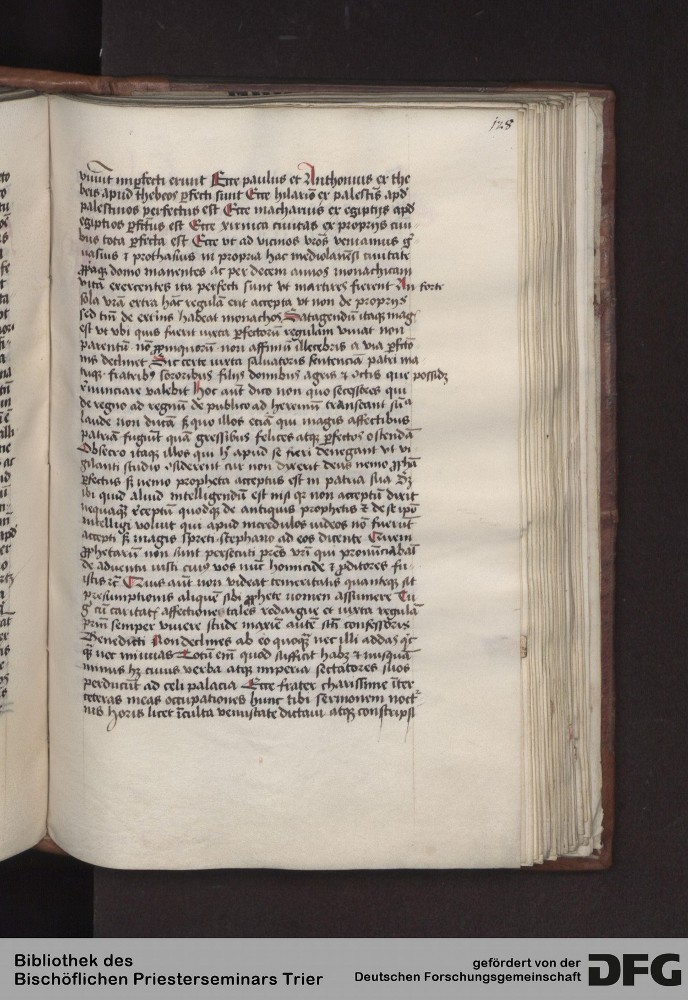 128
viuūt imꝑfecti erunt Ecce paulus et Anthonius ex the
beis apud thebeos ꝑfecti sunt Ecce hilariō ex palestis apd
palestinos perfectus est Ecce macharius ex egiptijs apd
egiptios ꝑfctus est Ecce xirnica ciuitas ex proprijs ciui
bus tota ꝑfecta est Ecce vt ad vicinos vrōs veniamus gͥ
uasius ⁊ prothasius in propria hac mediolanēsi ciuitate
domo manentes ac per decem annos monachicam
vitā exercentes ita perfecti sunt vt martires fierent An forte
sola vrām extra hāc regulā erit accepta vt non de proprijs
sed tm̄ de exteris habeat monachos Satagendū itaqꝫ mag
est vt vbi quis fuerit iuxta ꝑfectorū regulam viuat non
parentū nō ꝓpinquorū non affiniū illecebris a via ꝑfcto
ins declinet Sic certe iuxta saluatoris sentencia patri ma
triqꝫ fratribꝫ sororibus filijs domibus agris ⁊ que possidꝫ
renunciare valebit Hoc aūt dico non quo secessores qui
de regno ad regnū de publico ad heremū transeant sūa
laude non ducā sꝫ quo illos eciā qui magis affectibus
patriā fugiūt quā gressibus felices atqꝫ ꝑfectos ostendā
Obsecro itaqꝫ illos qui apud se fieri denegant vt vi
gilanti studio ꝯsiderent cur non dixerit deus nemo ꝓphā
ꝑfectus sꝫ nemo propheta acceptus est in patria sua Sꝫ
ibi quid aliud intelligendū est nisi qꝛ non acceptū dixit
nequaqꝫ exceptū quodqꝫ de antiquis prophetis ⁊ de se ipō
intelligi voluit qui apud incredulos iudeos nō fuerūt
accepti sꝫ magis spreti stephano ad eos dicente Quem
ꝓphetarū non sunt persecuti prēs vrī qui pronūciabāt
de aduentu iusti cuiꝰ vos nūc homicide ⁊ ꝓditores fu
istis ⁊c Quis aūt non videat temeritatis quanteqꝫ sit
presumptionis aliquē sibi ꝓphete nomen assumere Tu
gͦ cū caritatis affectione tales redargue et iuxta regulā
prīm semper viuere stude maxīe autē sctī confessoris
Benedicti Non declines ab eo quoqꝫ nec illi addas qͥc
qͣꝫ nec minuas Totū em̄ quod sufficit habꝫ ⁊ nusquā
minus hꝫ cuius verba atqꝫ imperia sectatores suos
perducūt ad celi palacia Ecce frater charissime īter
ceteras meas occupationes hunc tibi sermonem noctꝰ
nis horis licet īculta venustate dictaui atqꝫ conscripsi
Bibliothek des
Bischöflichen Priesterseminars Trier
gefördert von der
Deutschen Forschungsgemeinschaft
DFG